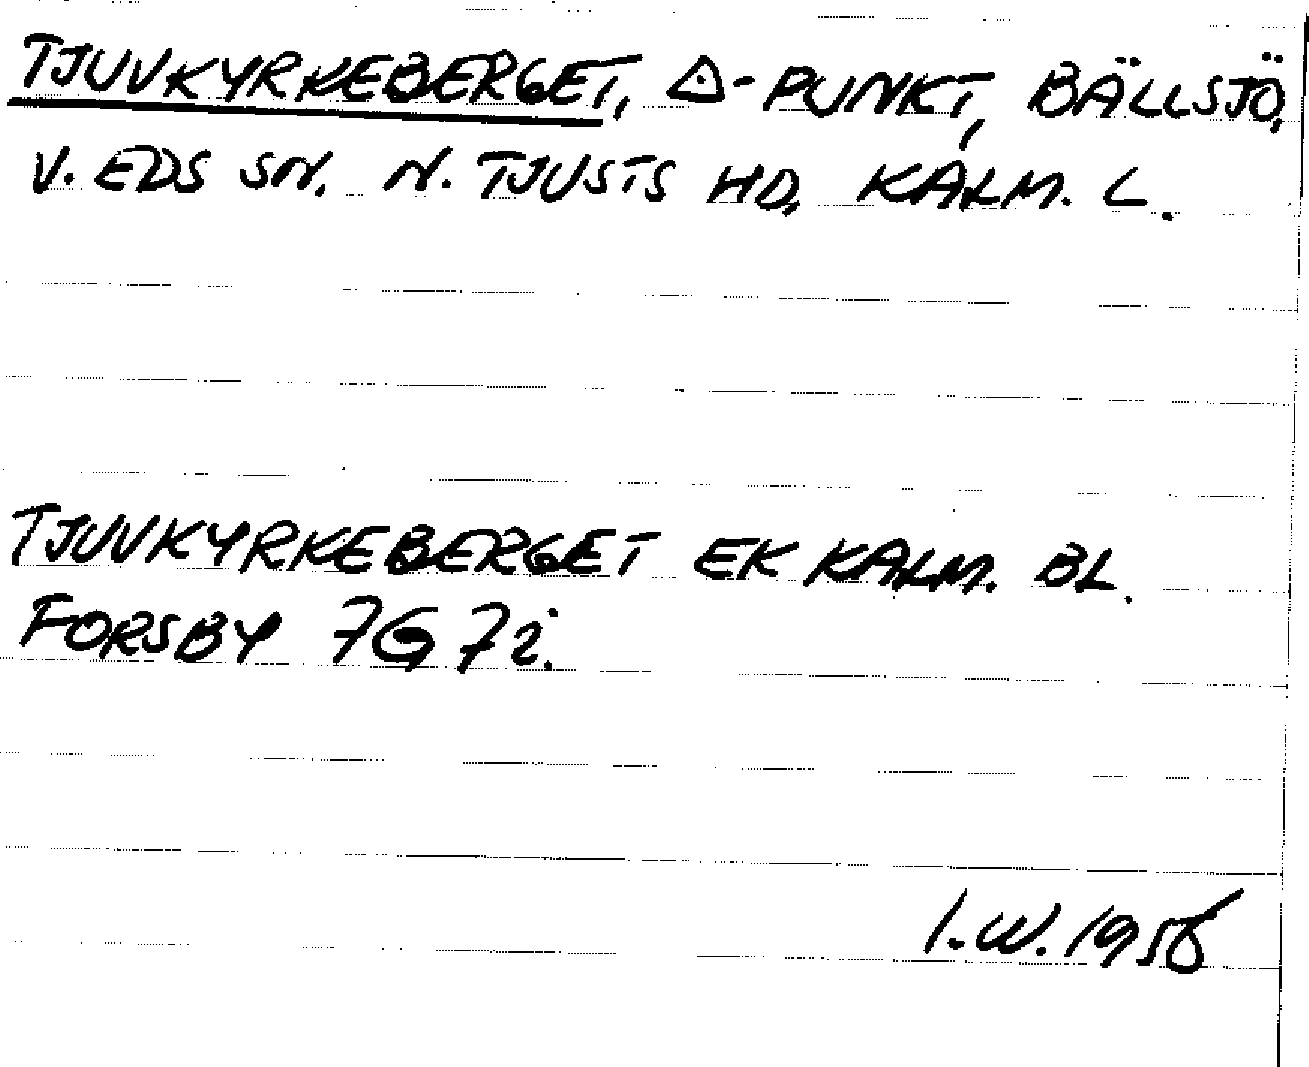 TJUVKYRKEBERGET, △-PUNKT, BÄLLSJÖ,
V. EDS SN. N. TJUSTS HD, KALM. L.
TJUVKYRKEBERGET EK KALM. BL.
FORSBY 7G 7i.
I.W. 1956